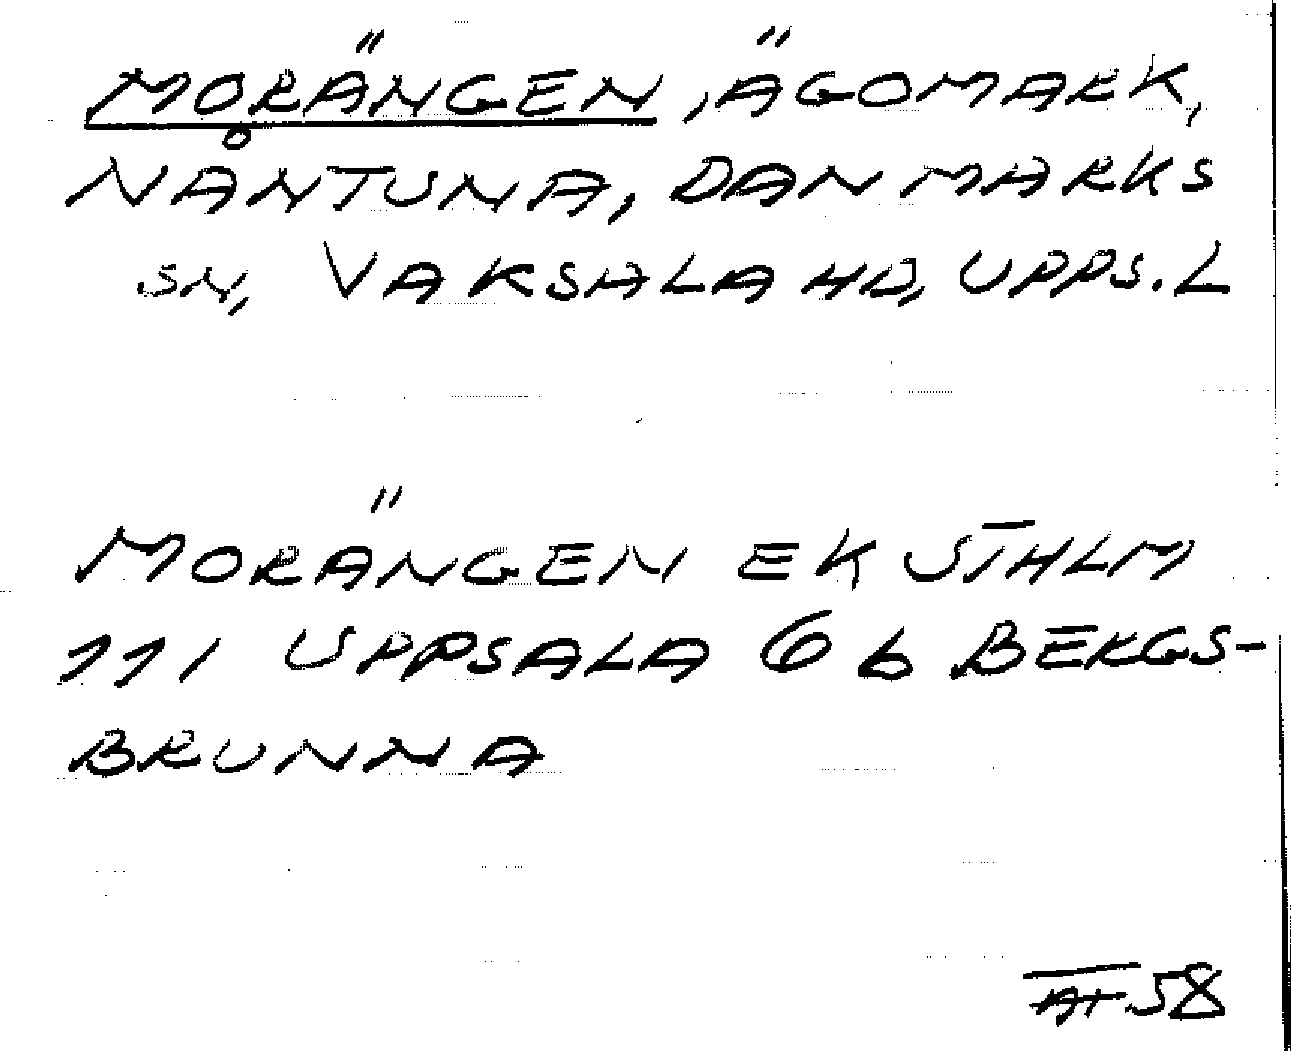 MORÄNGEN, ÄGOMARK,
NÅNTUNA, DANMARKS
SN, VAKSALA HD, UPPS. L
MORÄNGEN EK STHLM
111 UPPSALA 6 b BERGS-
BRUNNA
58